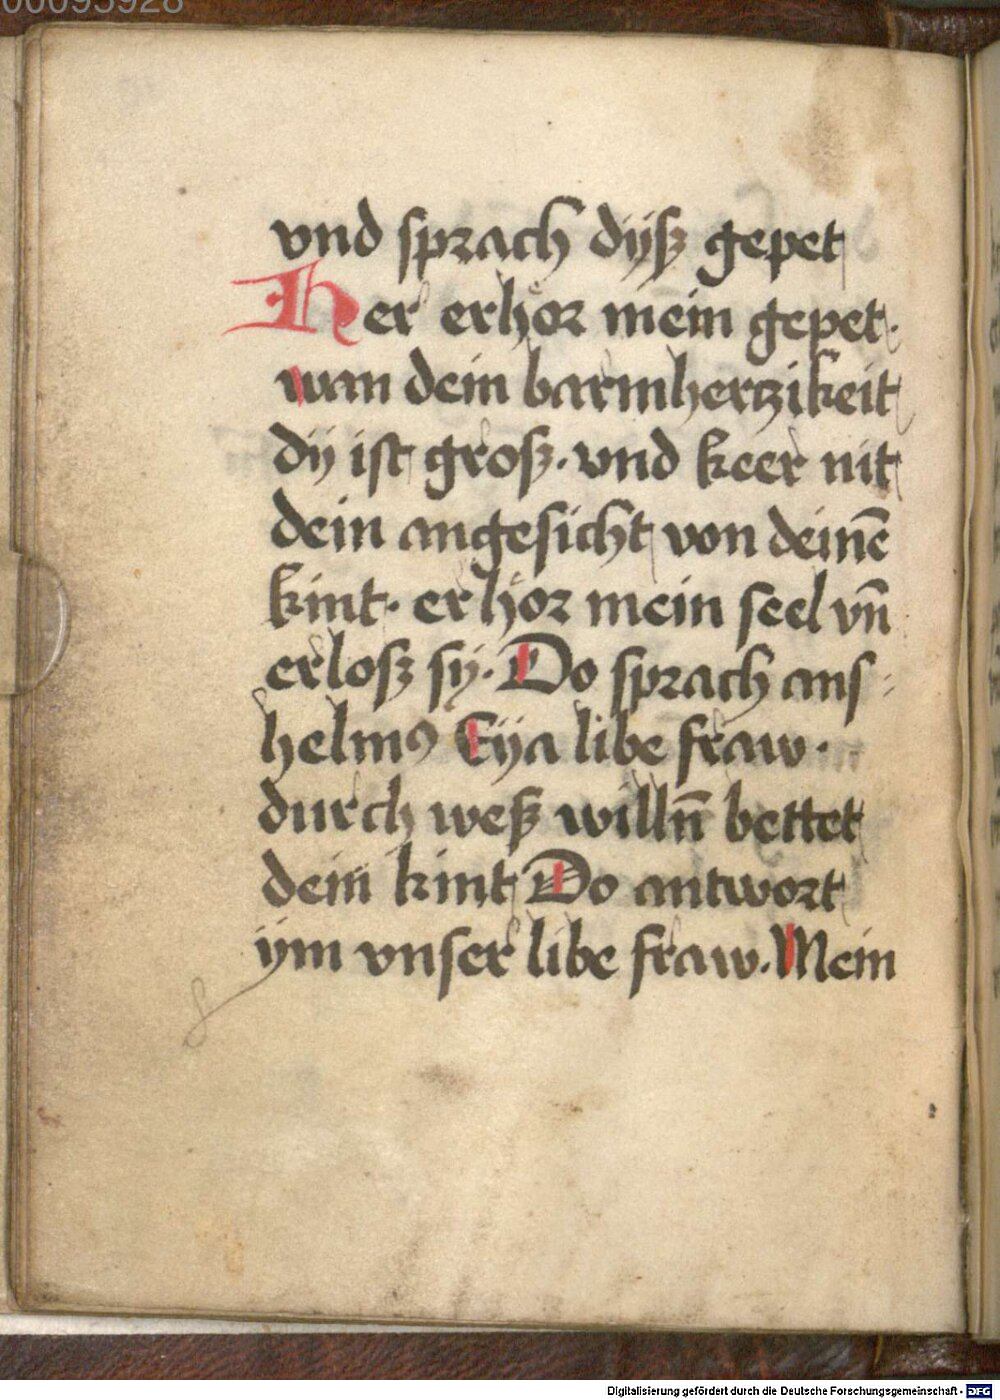 00095928
vnd sprach dijß gepet
Her erhör mein gepet.
wan dein barmhertzikeit
dij ist groß. vnd keer nit
dein angesicht von deinē
kint. erhör mein seel vn̄
erloß sy. Do sprach ans
helmꝰ Eija libe fraw.
durch weß willn̄ bettet
dein kint Do antwort
ym vnser libe fraw. Mein
Digitalisierung gefördert durch die Deutsche Forschungsgemeinschaft - DFG